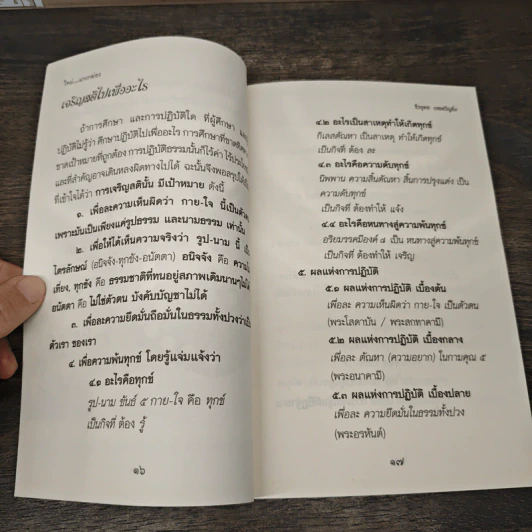 เจริญสติไปเพื่ออะไร
ถ้าการศึกษา และการปฏิบัติใด ที่ผู้ศึกษา และ
ปฏิบัติไม่รู้ว่า ศึกษาปฏิบัติไปเพื่ออะไร การศึกษาที่ขาด
ขาดเป้าหมายที่ถูกต้อง การปฏิบัติธรรมนั้นก็ไร้ค่า
และที่สำคัญอาจเดินหลงผิดทางไปได้ ฉะนั้นจึงพอสรุป
ที่เข้าใจได้ว่า การเจริญสตินั้น มีเป้าหมาย ดังนี้
๑. เพื่อละความเห็นผิดว่า กาย-ใจ นี้เป็นตัว
เพราะมันเป็นเพียงแค่รูปธรรม และนามธรรม เท่านั้น
๒. เพื่อให้ได้เห็นความจริงว่า รูป-นาม นี้
ไตรลักษณ์ (อนิจจัง-ทุกขัง-อนัตตา) อนิจจัง คือ ความไม่
เที่ยง, ทุกขัง คือ ธรรมชาติที่ทนอยู่สภาพเดิมนานๆไม่ได้
อนัตตา คือ ไม่ใช่ตัวตน บังคับบัญชาไม่ได้
๓. เพื่อละความยึดมั่นถือมั่นในธรรมทั้งปวงว่าเป็น
ตัวเรา ของเรา
๔. เพื่อความพ้นทุกข์ โดยรู้แจ่มแจ้งว่า
๔.๑ อะไรคือทุกข์
รูป-นาม ขันธ์ ๕ กาย-ใจ คือ ทุกข์
เป็นกิจที่ ต้อง รู้
๑๖
๔.๒ อะไรเป็นสาเหตุทำให้เกิดทุกข์
กิเลสตัณหา เป็นสาเหตุ ทำให้เกิดทุกข์
เป็นกิจที่ ต้อง ละ
๔.๓ อะไรคือความดับทุกข์
นิพพาน ความสิ้นตัณหา สิ้นการปรุงแต่ง เป็น
ความดับทุกข์
เป็นกิจที่ ต้องทำให้ แจ้ง
๔.๔ อะไรคือหนทางสู่ความพ้นทุกข์
อริยมรรคมีองค์ ๘ เป็น หนทางสู่ความพ้นทุกข์
เป็นกิจที่ ต้องทำให้ เจริญ
๕. ผลแห่งการปฏิบัติ
๕.๑ ผลแห่งการปฏิบัติ เบื้องต้น
เพื่อละ ความเห็นผิดว่า กาย-ใจ เป็นตัวตน
(พระโสดาบัน / พระสกทาคามี)
๕.๒ ผลแห่งการปฏิบัติ เบื้องกลาง
เพื่อละ ตัณหา (ความอยาก) ในกามคุณ ๕
(พระอนาคามี)
๕.๓ ผลแห่งการปฏิบัติ เบื้องปลาย
เพื่อละ ความยึดมั่นในธรรมทั้งปวง
(พระอรหันต์)
๑๗